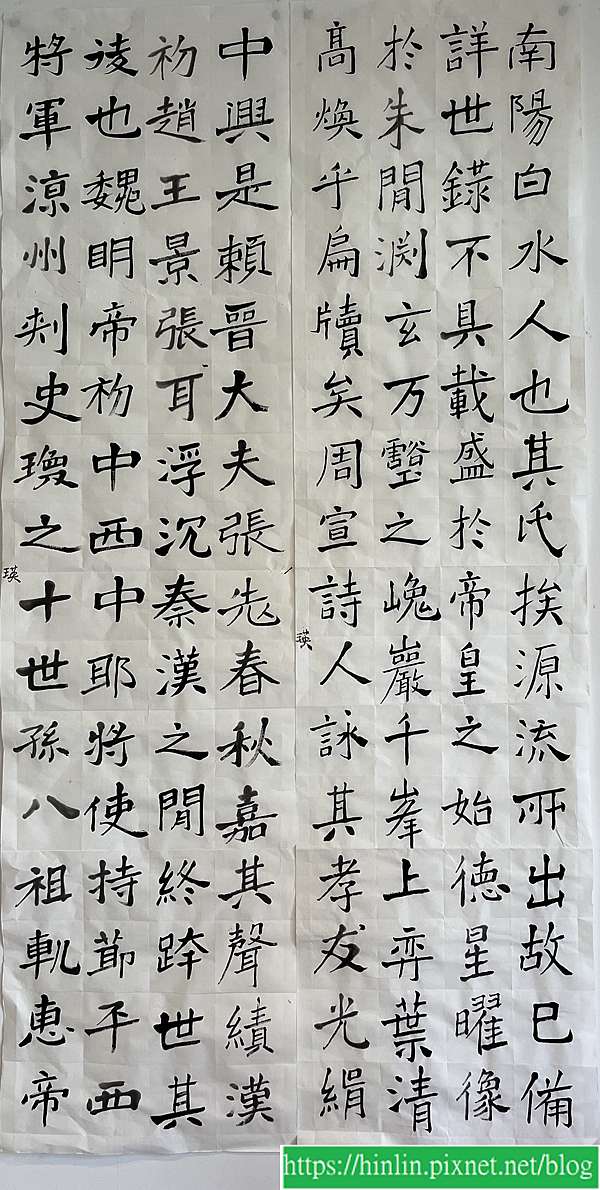 南陽白水人也其氏挨源流所出故已備
詳世錄不具載盛於帝皇之始德星曜像
於朱閒渕玄万壑之巉巖千峯上弈葉清
高煥乎扁牘矣周宣詩人詠其孝友光緝
瑛
中興是賴晉大夫張先春秋嘉其聲績漢
初趙王景張耳浮沉秦漢之閒終跨世其
淩也魏明帝初中西中耶將使持節平西
將軍涼州刾史瓊之十世孫八祖軌惠帝
瑛
https://hinlin.pixnet.net/blog